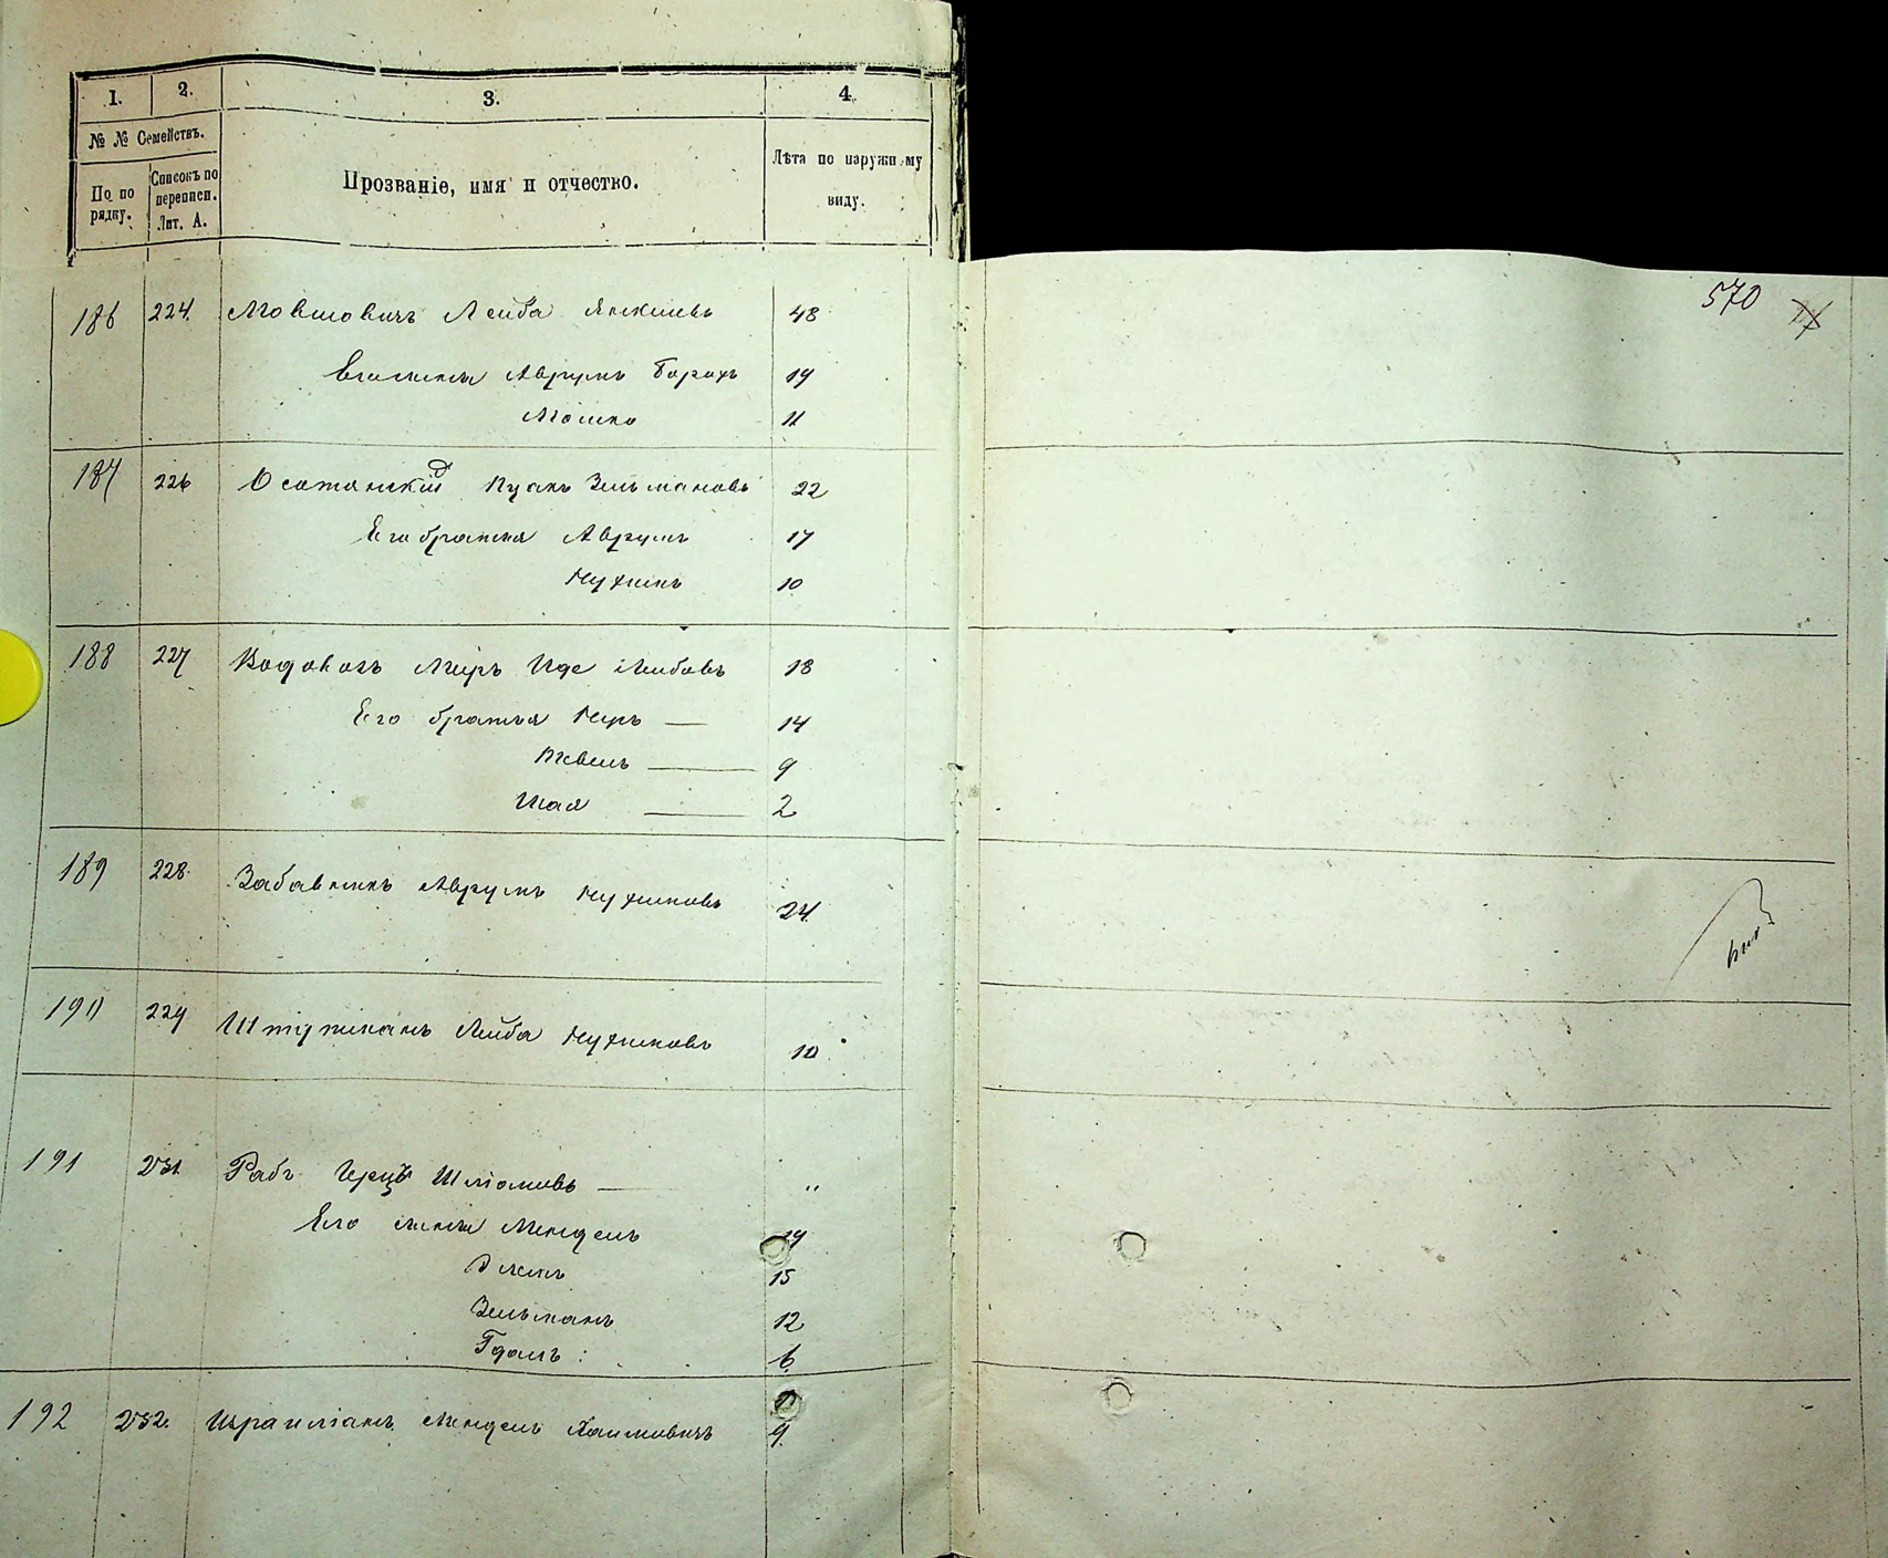 1. 2. 3. 4.
№ № Семействъ.
По по рядку.
Списокъ по переписи. Лит. А.
Прозваніе, имя и отчество.
Лѣта по наружн му виду.
570
186 224. Мовшовичъ Лейба Янкелевъ 48
Аврумъ Борохъ 19
Мошко 11
187 226 Осатинскій Ицекъ Зельмановъ 22
Его братья Аврумъ 17
Нухимъ 10
188 227 Водовозъ Мееръ Иде Лейбовъ 18
Его братья 14
9
Шая 2
189 228. Забавникъ Аврумъ Нухимовъ 24.
190 229 Лейба Нухимовъ 10
191 231. Рабъ Герцъ Шліомовъ „
Его сыновья Мендель 19
15
Зельманъ 12
Гдаль: 6.
192 232. Израиліанъ Мендель Хаимовичъ 9.